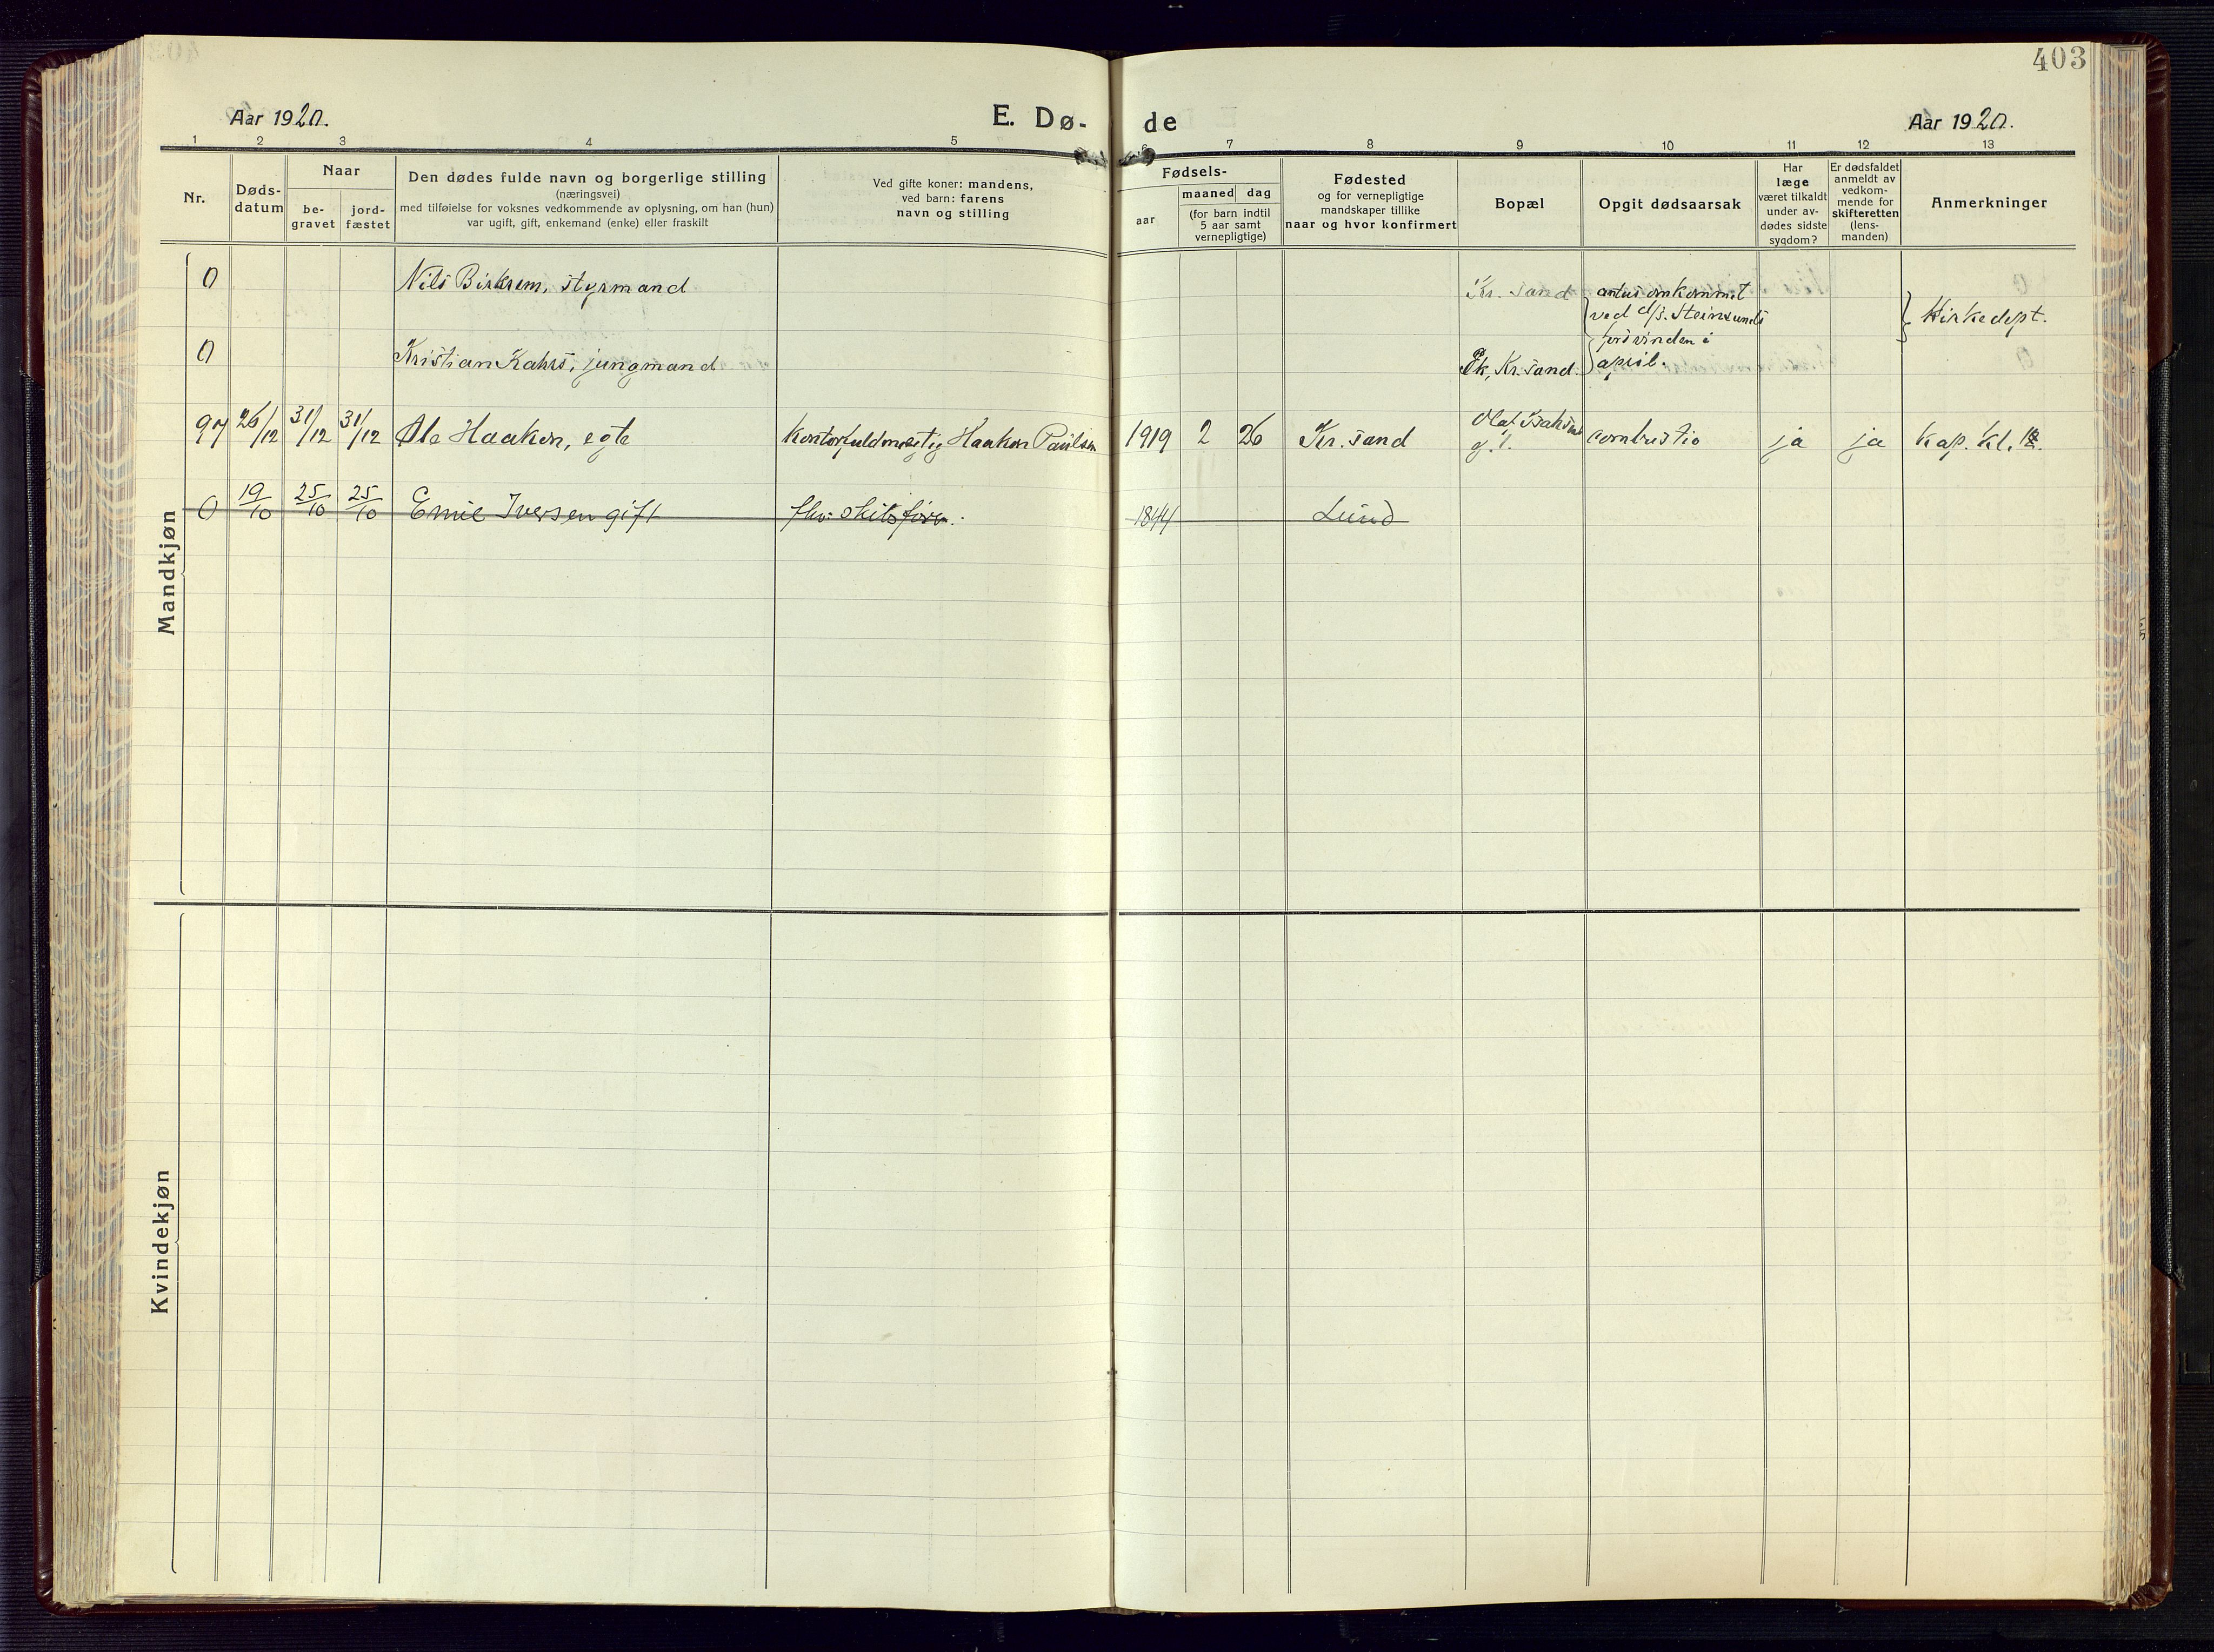 403
Aar 1920.
E. Dø-
de
Aar 1920.
1 2 3 4 5 6 7 8 9 10 11 12 13
Nr.
Døds-
datum
Naar
be-
gravet
jord-
fæstet
Den dødes fulde navn og borgerlige stilling
(næringsvei)
med tilføielse for voksnes vedkommende av oplysning, om han (hun)
var ugift, gift, enkemand (enke) eller fraskilt
Ved gifte koner: mandens,
ved barn: farens
navn og stilling
Fødsels-
aar
maaned dag
(for barn indtil
5 aar samt
vernepligtige)
Fødested
og for vernepligtige
mandskaper tillike
naar og hvor konfirmert
Bopæl
Opgit dødsaarsak
Har
læge
været tilkaldt
under av-
dødes sidste
sygdom?
Er dødsfaldet
anmeldt av
vedkom-
mende for
skifteretten
(lens-
manden)
Anmerkninger
Mandkjøn
0 Nils Birkrem, styrmand Kr. sand
antas omkommet
ved d/s. Steinsunds
forsvinden i
april.
Kirkedept.
0 Kristian Kahrs, jungmand Kr. sand.
97 26/12 31/12 31/12 Ole Haakon, egte Kontorfuldmægtig Haakon Paulsen 1919 2 26 Kr. sand Olaf Isaksens g. 1. combustio ja ja Kap. kl.
0 19/10 25/10 25/10 Emil Iversen gift fhv. skibsfører. 1844 Lund
Kvindekjøn